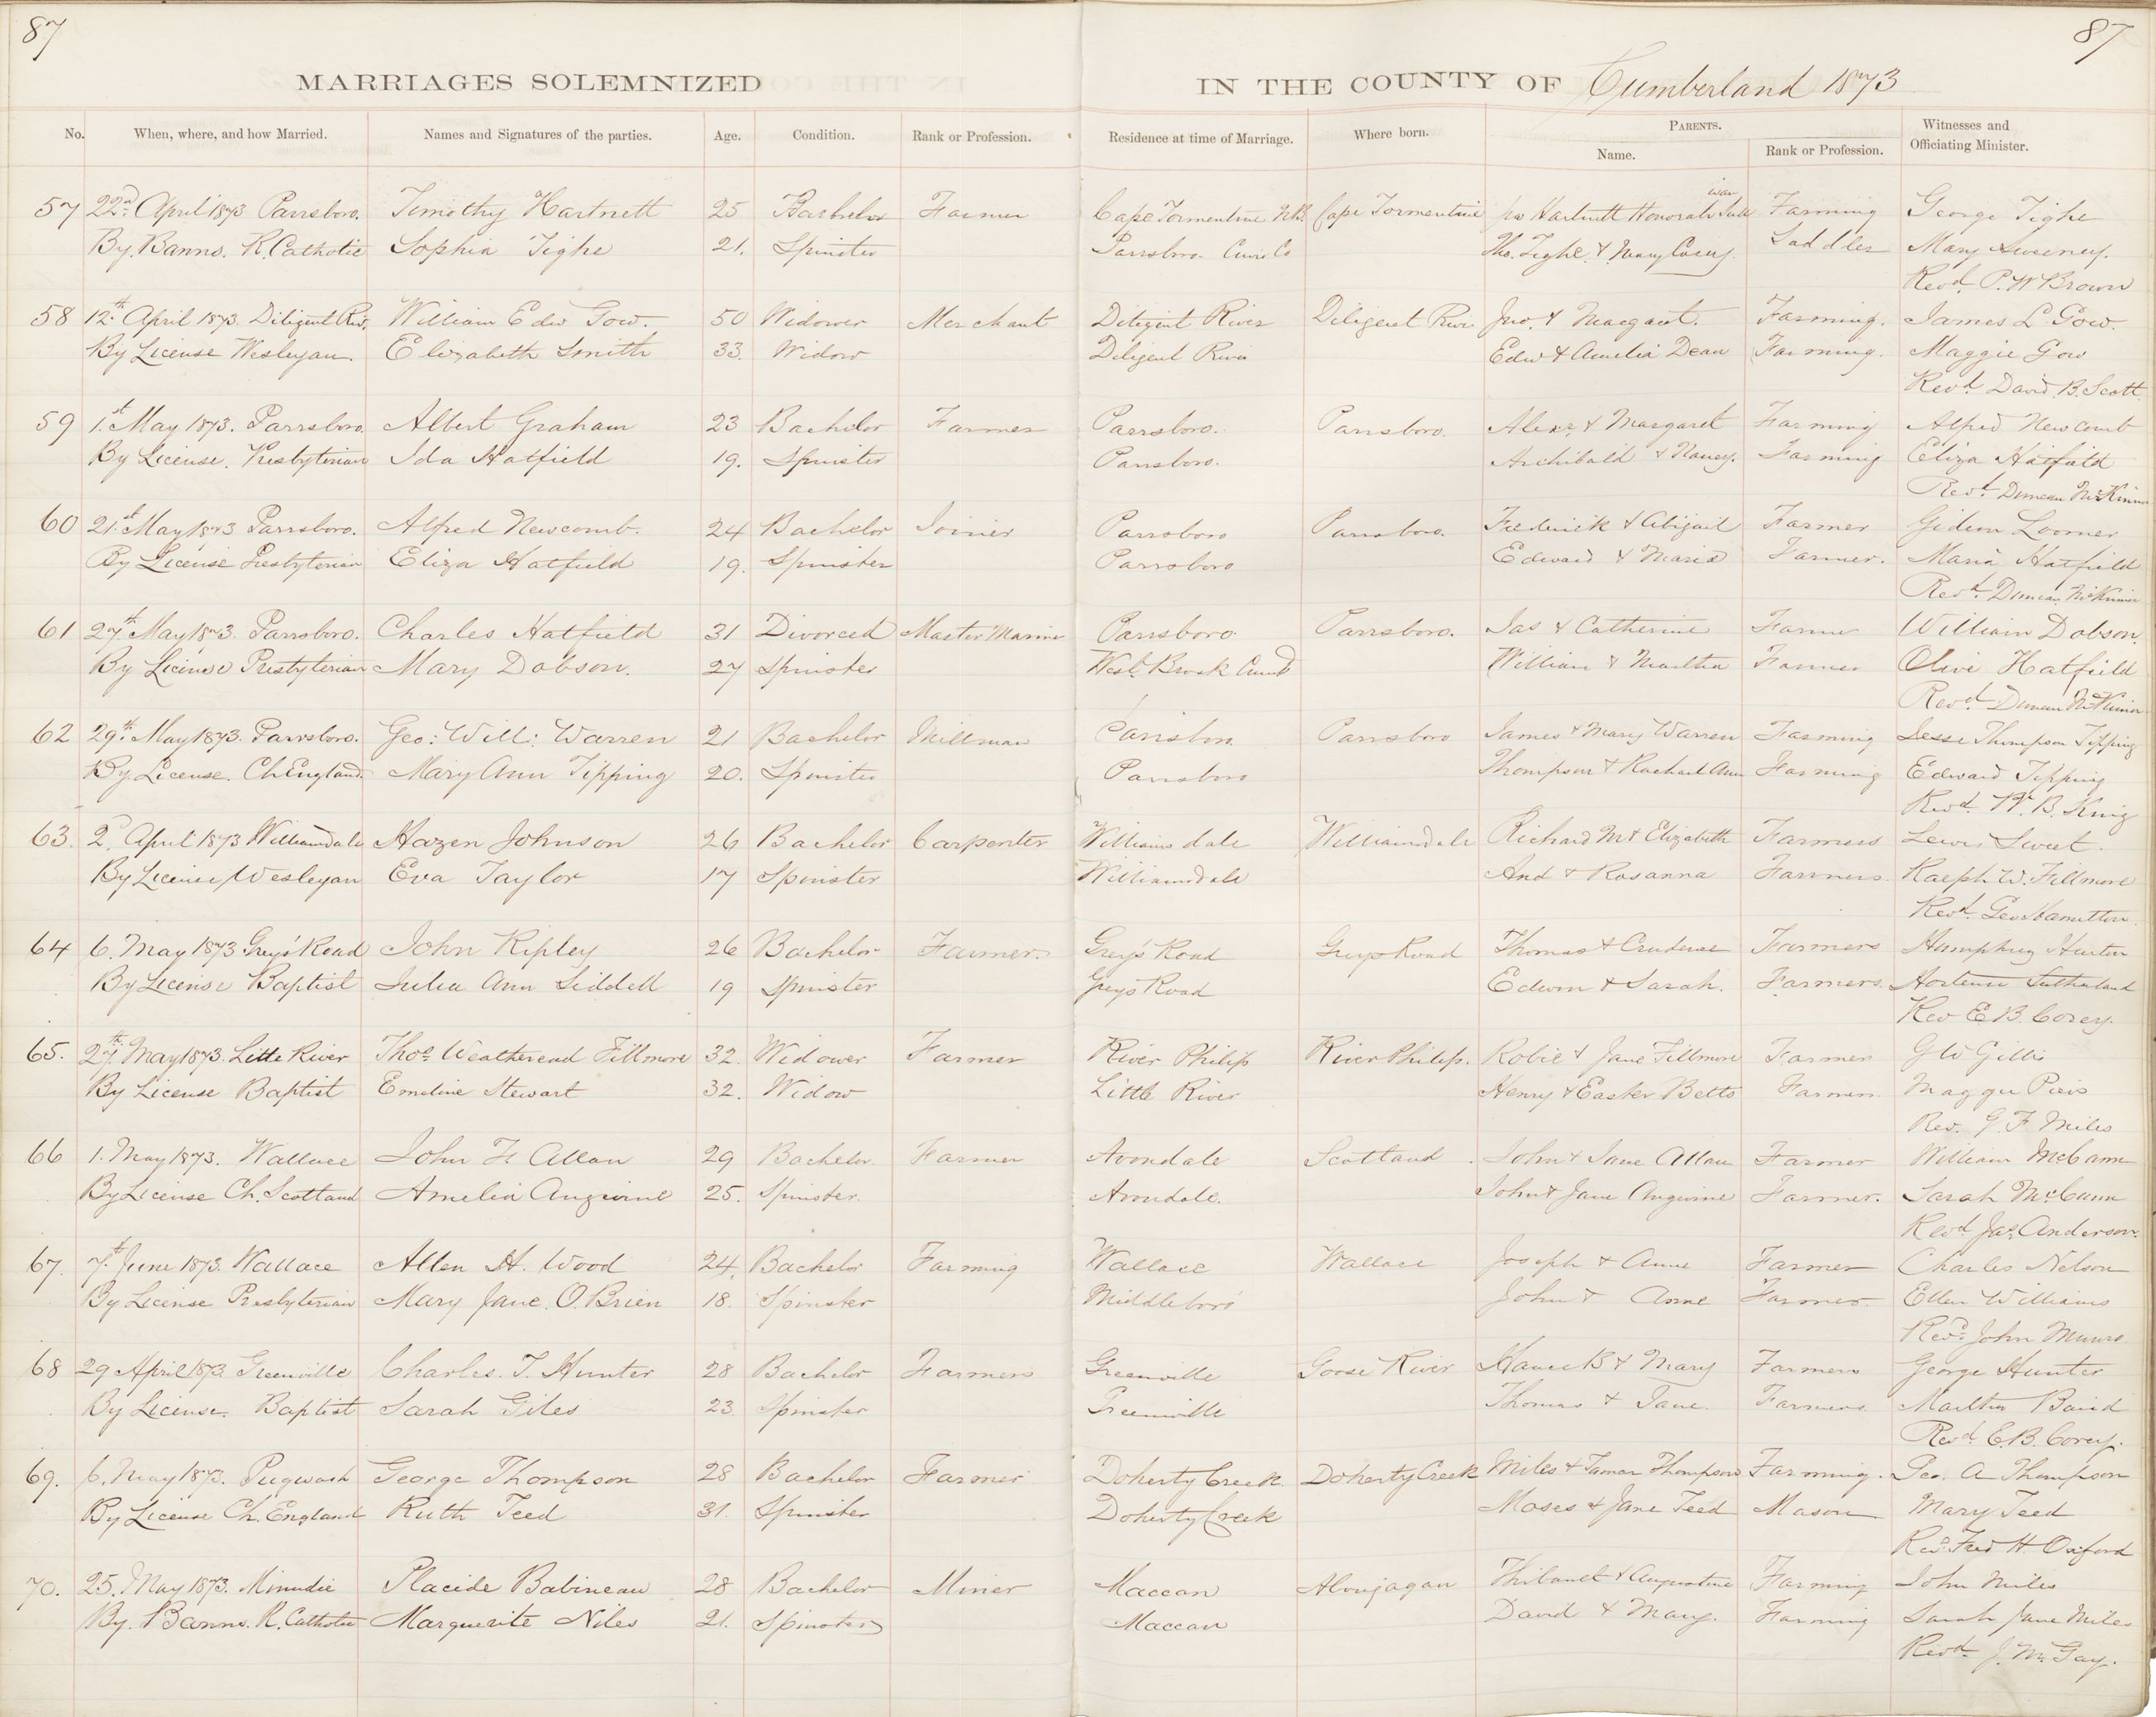 87
87
MARRIAGES SOLEMNIZED IN THE COUNTY OF Cumberland 1873
No. When, where, and how Married. Names and Signatures of the parties. Age. Condition. Rank or Profession. Residence at time of Marriage. Where born. PARENTS. Name. Rank or Profession. Witnesses and Officiating Minister.
57 22nd April 1873 Parrsboro. Timothy Hartnett 25 Bachelor Farmer Cape Tormentine NB. Cape Tormentine Jno Hartnett Honorah Farming George Tighe
By Banns. R. Catholic Sophia Tighe 21. Spinster Parrsboro. Tho. Tighe & Mary Casey Saddler Mary Sweeney.
Revd. P. W Brown
58 12th April 1873. Diligent Riv. William Edw Gow. 50 Widower Merchant Diligent River Diligent River Jno. & Margaret. Farming. James L Gow.
By License Wesleyan. Elizabeth Smith 33. Widow Diligent River Edw & Amelia Dean Farming. Maggie Gow
Revd David B. Scott
59 1st May 1873. Parrsboro. Albert Graham 23 Bachelor Farmer Parrsboro. Parrsboro. Alexr. & Margaret Farming Alfred Newcomb
By License. Presbyterian Ida Hatfield 19. Spinster Parrsboro. Archibald & Nancy. Farming Eliza Hatfield
Revd. Duncan McKinnon
60 21st May 1873 Parrsboro. Alfred Newcomb. 24 Bachelor Joiner Parrsboro Parrsboro. Frederick & Abigail Farmer Gideon Loomer
By License Presbyterian Eliza Hatfield 19. Spinster Parrsboro Edward & Maria Farmer. Maria Hatfield
Revd. Duncan McKinnon
61 27th May 1873. Parrsboro. Charles Hatfield 31 Divorced Master Marine Parrsboro Parrsboro. Jas & Catherine Farmer William Dobson.
By License Presbyterian Mary Dobson. 27 Spinster West Brook Cumb William & Martha Farmer Olive Hatfield
Revd Duncan McKinnon
62 29th May 1873. Parrsboro. Geo: Will: Warren 21 Bachelor Millman Parrsboro. Parrsboro James & Mary Warren Farming Jesse Thompson Tipping
By License. Ch England. Mary Ann Tipping 20. Spinster Parrsboro Thompson & Rachael Ann Farming Edward Tipping
Revd W. B. King
63. 2d April 1873 Williamsdale Hazen Johnson 26 Bachelor Carpenter Williamsdale Williamsdale Richard M & Elizabeth Farmers Lewis Sweet.
By License Wesleyan Eva Taylor 17 Spinster Williamsdale And & Rosanna Farmers. Ralph W. Fillmore
Revd. Geo Hamilton
64 6. May 1873 Grey's Road John Ripley 26 Bachelor Farmer. Grey's Road Greys Road Thomas & Farmers Humphrey Hunter
By License Baptist Julia Ann Liddell 19 Spinster Greys Road Edwin & Sarah. Farmers. Hortense Sutherland
Rev E B. Corey.
65. 27th May 1873. Little River Thos Weatherend Fillmore 32. Widower Farmer River Philip River Philip. Robie & Jane Fillmore Farmer G W Gillis
By License Baptist Emeline Stewart 32. Widow Little River Henry & Easter Betts Farmer. Maggie
Rev. G. F. Miles
66 1. May 1873. Wallace John F Allan 29 Bachelor. Farmer Avondale Scotland John & Jane Allan Farmer William McCann
By License Ch. Scotland Amelia Angwine 25. Spinster. Avondale. John & Jane Angwine Farmer. Sarah McCann
Revd Jas. Anderson.
67. 7th June 1873. Wallace Allen H. Wood 24. Bachelor Farming Wallace Wallace Joseph & Anne Farmer Charles Nelson
By License Presbyterian Mary Jane O.Brien 18. Spinster Middleboro John & Anne Farmer. Ellen Williams
Revd. John Munro.
68 29 April 1873. Greenville Charles. T. Hunter 28 Bachelor Farmers Greenville Goose River B & Mary Farmers George Hunter
By License. Baptist Sarah Giles 23. Spinster Greenville Thomas & Jane. Farmers. Martha Baird
Revd. E. B. Corey.
69. 6. May 1873. Pugwash George Thompson 28 Bachelor Farmer Doherty Creek. Doherty Creek Miles & Tamar Thompson Farming. Geo. A Thompson
By License Ch. England Ruth Teed 31. Spinster Doherty Creek Moses & Jane Teed Mason Mary Teed
Revd. Fred H. Oxford
70. 25. May 1873. Minudie Placide Babineau 28 Bachelor Miner Maccan Aboujagan Thibault & Augustine Farming John Miles
By. Banns. R. Catholic Marguerite Niles 21. Spinster Maccan David & Mary. Farming Sarah Jane Miles
Revd. J. Mc Gay.